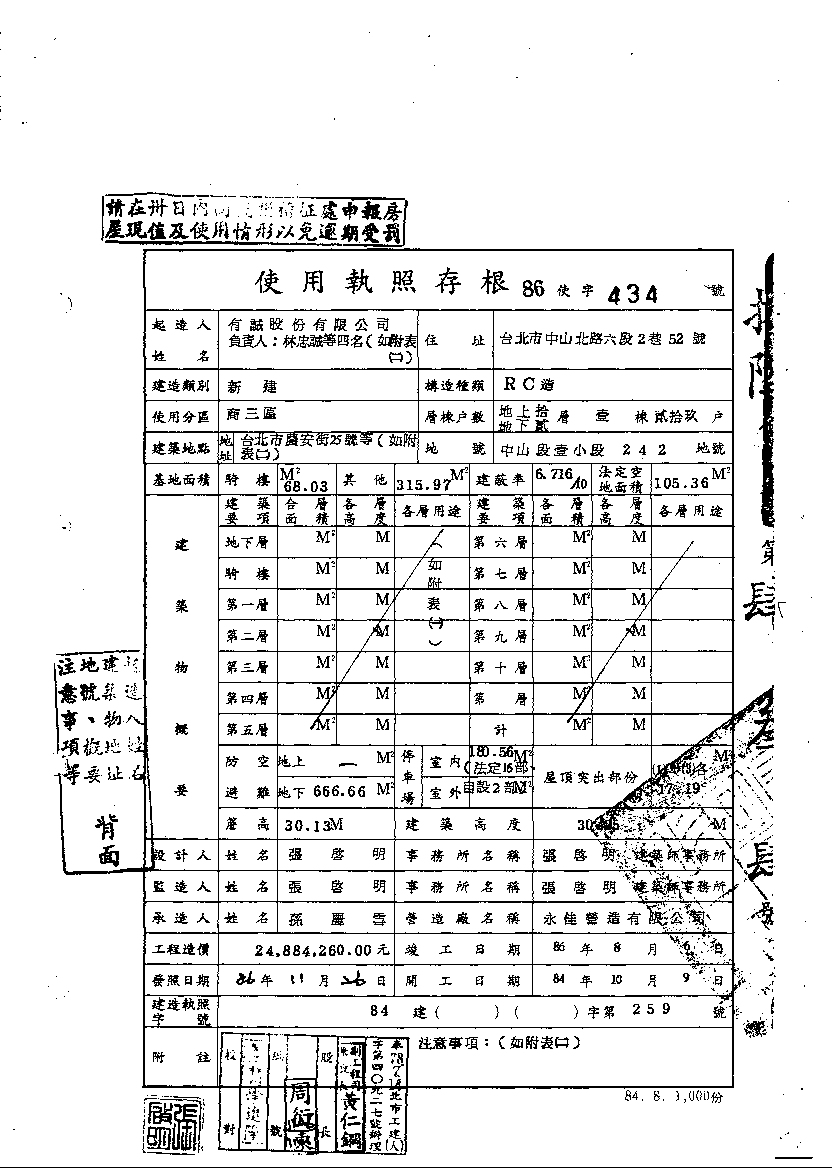 請在卅日內向 處申報房
屋現值及使用情形以免逾期受罰
使用執照存根 86 使字 434 號
起造人
姓名
有誠股份有限公司
負責人:林忠誠等四名(如附表
(二))
住址
台北市中山北路六段2巷52號
建造類別 新建 構造種類 RC造
使用分區 商三區 層棟戶數 地上拾 地下貳 層 壹 棟 貳拾玖 戶
建築地點 地址 台北市 安街25號等(如附
表(二))
地號 中山段壹小段 242 地號
基地面積 騎樓 68.03 M² 其他 315.97 M² 建蔽率 6.716/10 法定空地面積 105.36 M²
建築物概要
建築要項 各層面積 各層高度 各層用途 建築要項 各層面積 各層高度 各層用途
地下層 M² M (如附表(一)) 第六層 M² M
騎樓 M² M 第七層 M² M
第一層 M² M 第八層 M² M
第二層 M² M 第九層 M² M
第三層 M² M 第十層 M² M
第四層 M² M 第 層 M² M
第五層 M² M 計 M² M
防空避難 地上 — M² 停車場 室內 180.56 M² (法定16部 屋頂突出部份 M²
地下 666.66 M² 室外 自設2部 M² 17.19
簷高 30.13M 建築高度 M
設計人 姓名 張啓明 事務所名稱 張啓明建築師事務所
監造人 姓名 張啓明 事務所名稱 張啓明建築師事務所
承造人 姓名 孫麗雪 營造廠名稱 永佳營造有限公司
工程造價 24,884,260.00元 竣工日期 86年8月6日
發照日期 86年11月26日 開工日期 84年10月9日
建造執照字號 84 建( )( )字第 259 號
附註
注意事項:(如附表(二))
84. 8. 3,000份
注意事項等
地號、
背面
校對
股長
黃仁鋼
北市工建(人)
字第四〇九二七號辦理
第
肆